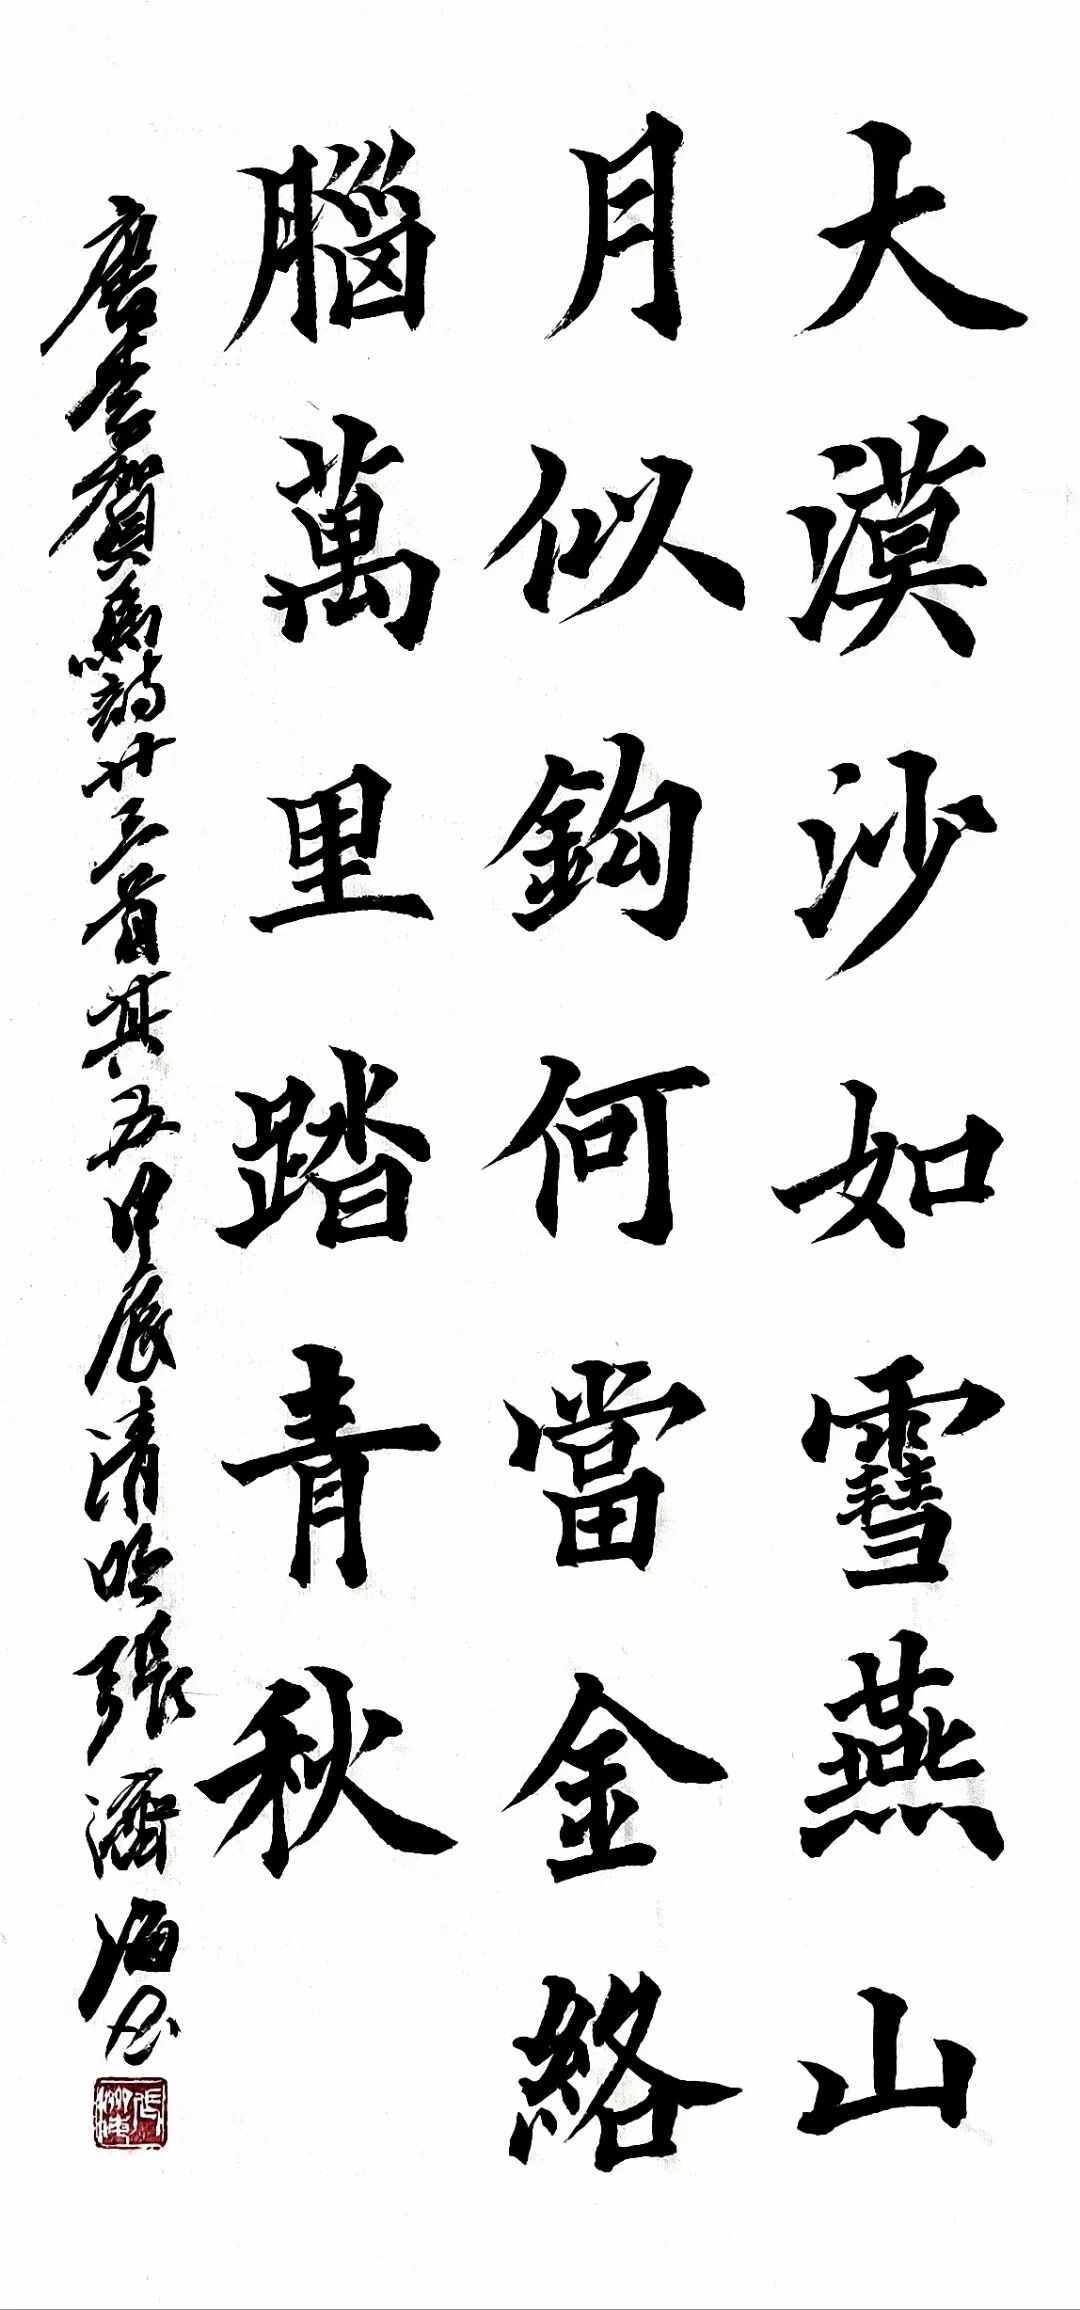 大漠沙如雪燕山
月似鈎何當金絡
腦萬里踏青秋
唐李賀馬詩廿三首其五甲辰清明張濟海書